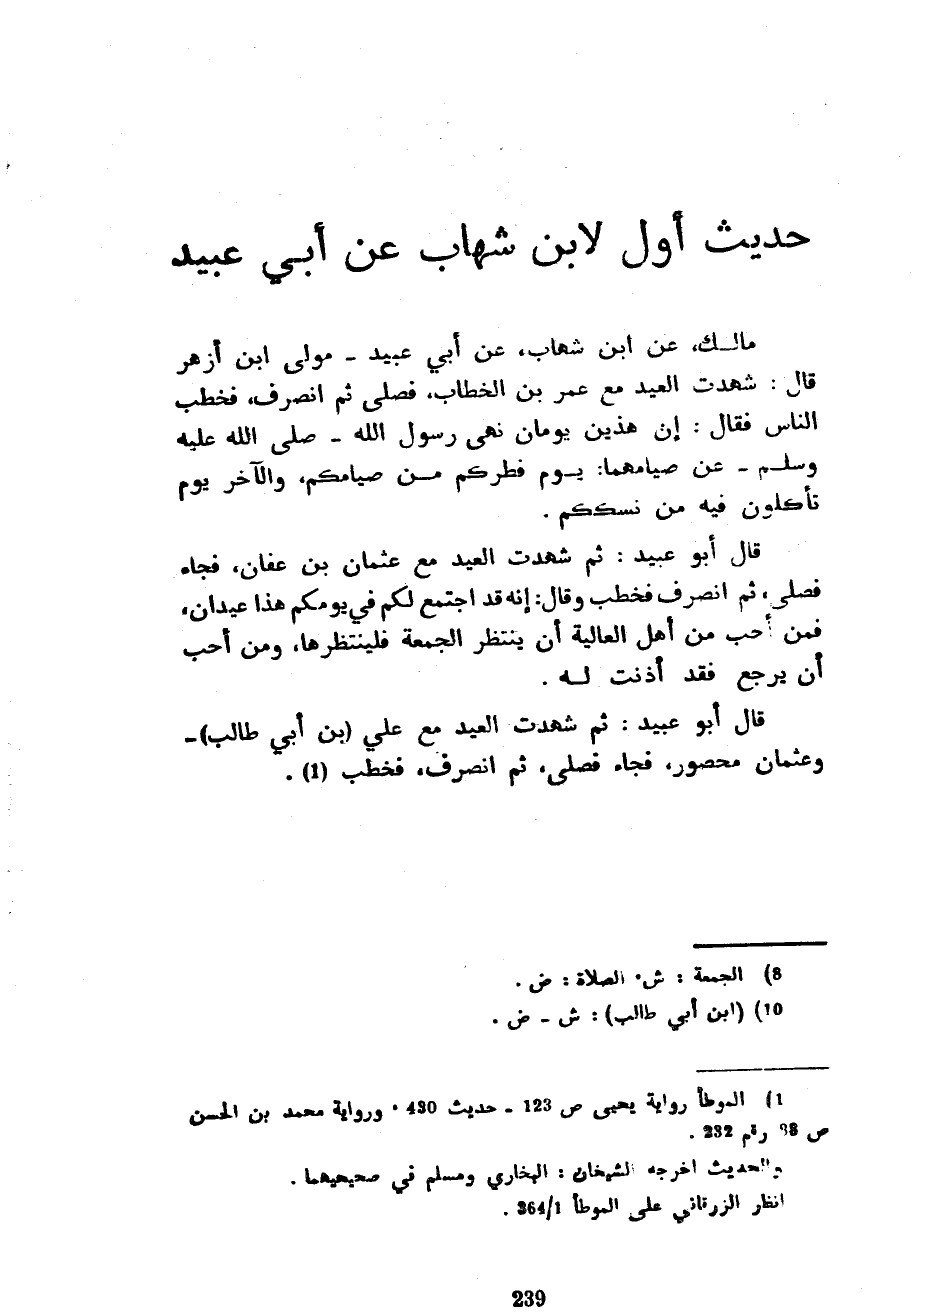 حديث أول لابن شهاب عن أبي عبيد
مالك، عن ابن شهاب، عن أبي عبيد - مولى ابن أزهر
قال : شهدت العيد مع عمر بن الخطاب، فصلى ثم انصرف، فخطب
الناس فقال : إن هذين يومان نهى رسول الله - صلى الله عليه
وسلم - عن صيامهما: يوم فطركم من صيامكم، والآخر يوم
تأكلون فيه من نسككم .
قال أبو عبيد : ثم شهدت العيد مع عثمان بن عفان، فجاء
فصلى، ثم انصرف فخطب وقال: إنه قد اجتمع لكم في يومكم هذا عيدان،
فمن أحب من أهل العالية أن ينتظر الجمعة فلينتظرها، ومن أحب
أن يرجع فقد أذنت له .
قال أبو عبيد : ثم شهدت العيد مع علي (بن أبي طالب)-
وعثمان محصور، فجاء فصلى، ثم انصرف، فخطب (1) .
8) الجمعة : ش. الصلاة : ض .
10) (ابن أبي طالب) : ش - ض .
1) الموطأ رواية يحيى ص 123 - حديث 430 . ورواية محمد بن الحسن
ص 88 رقم 232 .
والحديث اخرجه الشيخان : البخاري ومسلم في صحيحيهما .
انظر الزرقاني على الموطأ 364/1 .
239